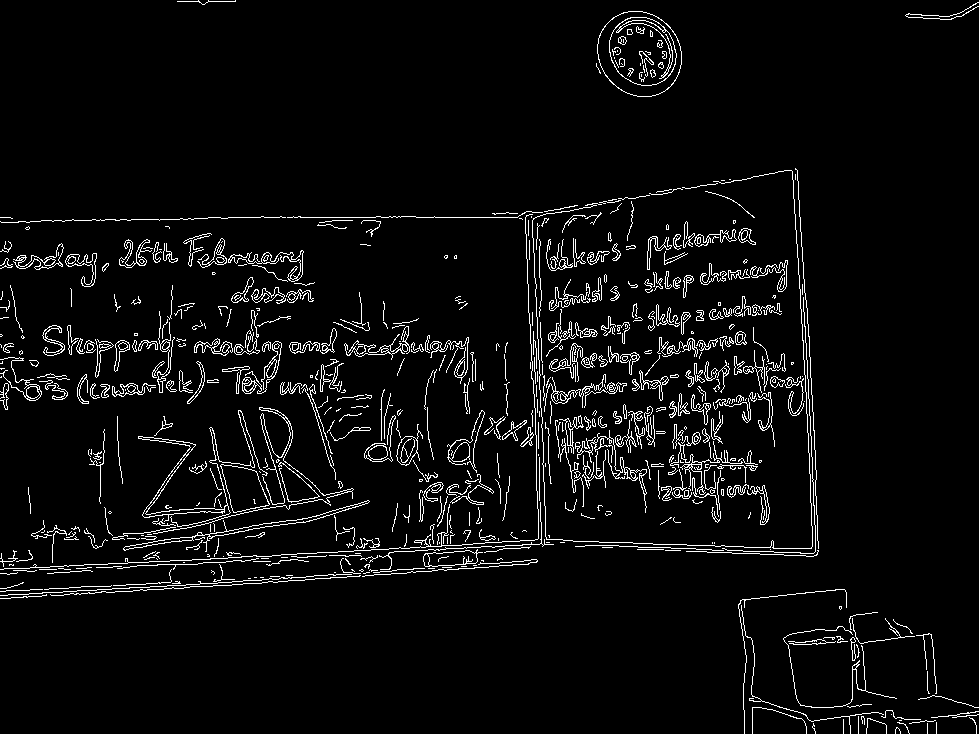 uesday, 26th February
Lesson
Shopping - reading and vocabulary
03 (czwartek) - Test unit 4.
ZHR
baker's - piekarnia
chemist's - sklep chemiczny
clothes shop - sklep z ciuchami
coffee shop - kawiarnia
computer shop - sklep komput.
music shop - sklep muzyczny
newsagent's - kiosk
shop -
zoologiczny